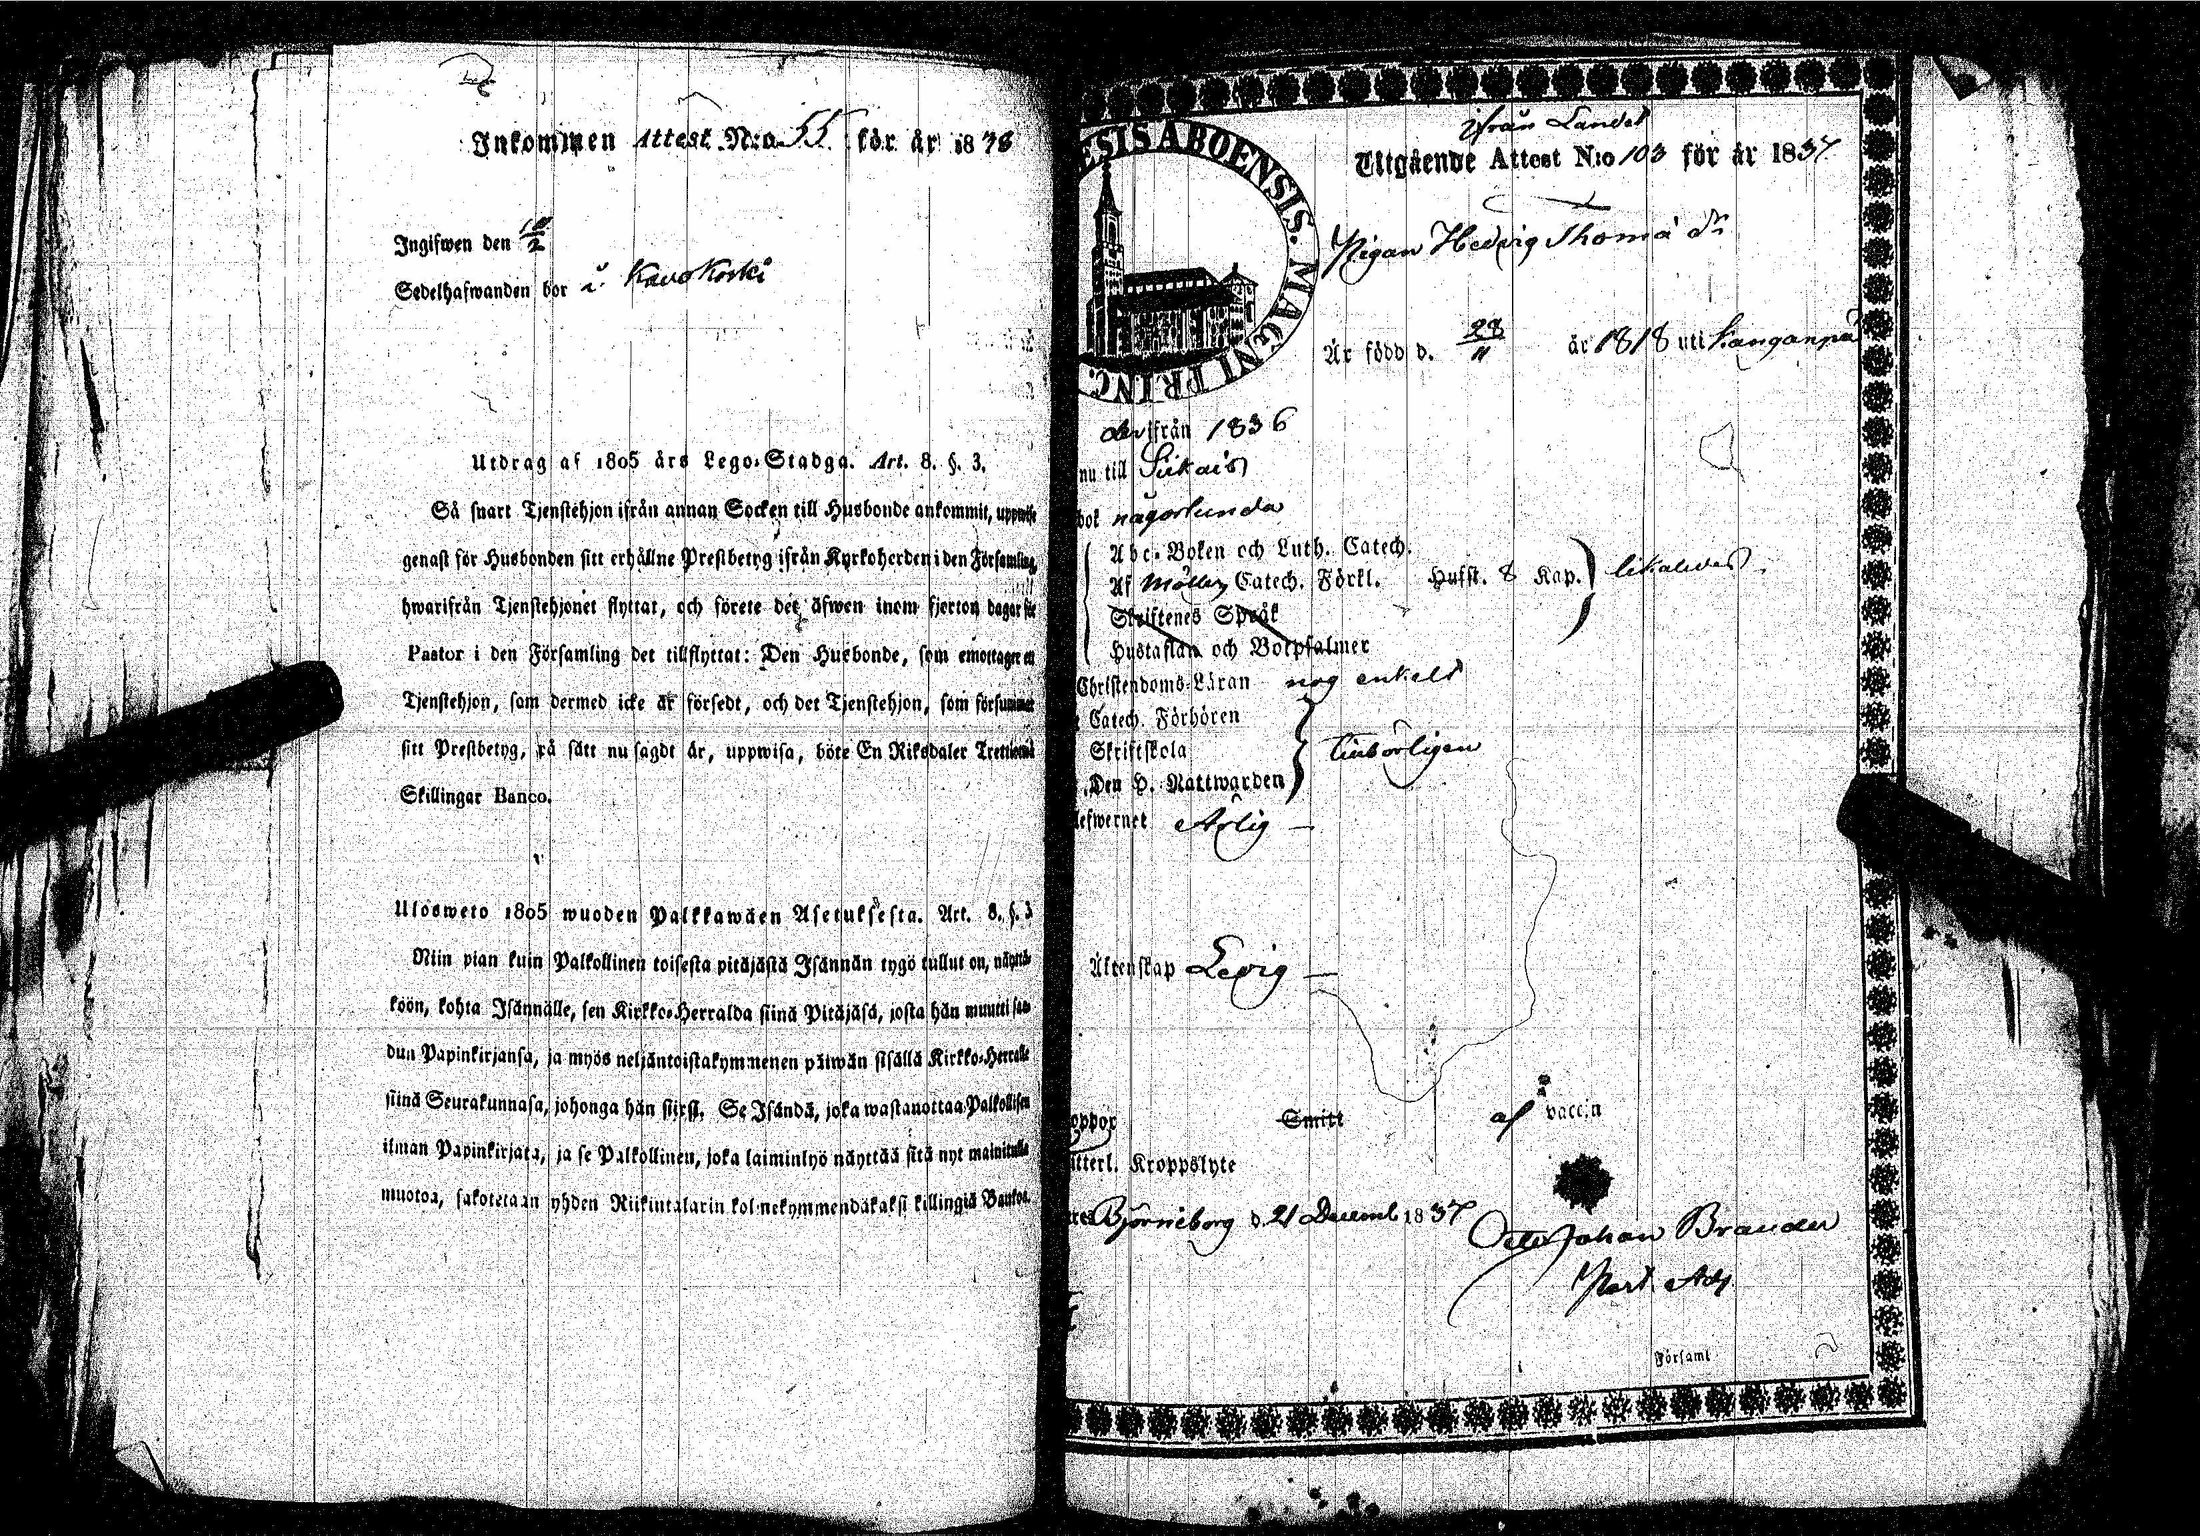 Inkommen Attest N:o 55 för år 1838
Ingifwen den 10/2
Sedelhafwanden bor i Kavokoski
Utdrag af 1805 års Lego-Stadga. Art. 8. §. 3.
Så snart Tjenstehjon ifrån annan Socken till Husbonde ankommit, uppwise
genast för Husbonden sitt erhållne Prestbetyg ifrån Kyrkoherden i den Församling,
hwarifrån Tjenstehjonet flyttat, och förete det äfwen inom fjorton dagar för
Pastor i den Församling det tillflyttat: Den Husbonde, som emottager et
Tjenstehjon, som dermed icke är försedt, och det Tjenstehjon, som försummar
sitt Prestbetyg, på sätt nu sagdt är, uppwisa, böte En Riksdaler Trettiotwå
Skillingar Banco.
Ulosweto 1805 wuoden Palkkawäen Asetuksesta. Art. 8. §. 3
Niin pian kuin Palkollinen toisesta pitäjästä Isännän tygö tullut on, näyttä-
köön, kohta Isännälle, sen Kirkko-Herralda siinä Pitäjäsä, josta hän muutti saa-
dun Papinkirjansa, ja myös neljäntoistakymmenen päiwän sisällä Kirkko-Herralle
siinä Seurakunnasa, johonga hän siirsi. Se Isändä, joka wastanottaa Palkollisen
ilman Papinkirjata, ja se Palkollinen, joka laiminlyö näyttää sitä nyt mainitulla
muotoa, sakotetaan yhden Riikintalarin kolmekymmendäkaksi killingiä Bankos.
ESIS ABOENSIS. MAGNI PRINC.
ifrån Landet
Utgående Attest N:o 103 för år 1837
Pigan Hedvig Thomä dr
Är född d. 28/11 år 1818 uti Kanganpä
ifrån 1836
nu till Siikais
bok någorlunda
Abc-Boken och Luth. Catech.
Af Möllers Catech. Förkl. Hufst. 8 Kap. likaledes
Skriftenes Språk
Hustaflan och Botpsalmer
Christendoms-Läran nog enkelt
Catech. Förhören
Skriftskola tillbörligen
Den H. Nattwarden
lefwernet Ärlig
Äktenskap Ledig
oppor Smitt af vaccin
itterl. Kroppslyte
Björneborg d. 21 Decemb 1837
Otto Johan Brander
Past. Adj.
Församl